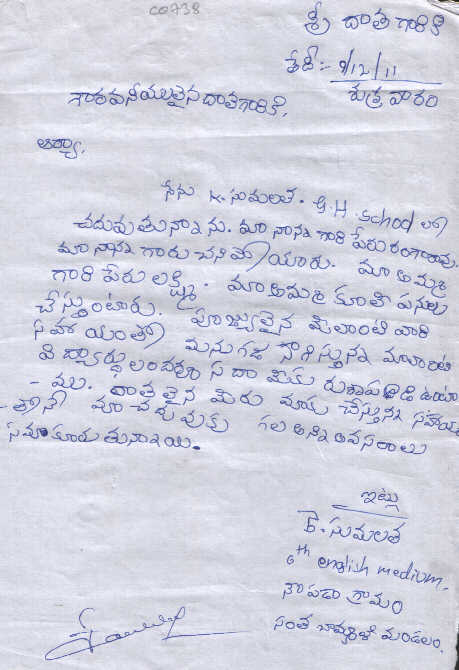 CO738
శ్రీ దాత గారికి
తేదీ:- 9/12/11
శుక్ర వారం
గౌరవనీయులైన దాతగారికి,
ఆర్యా,
నేను K. సుమలత. G.H. School లో
చదువుతున్నాను. మా నాన్న గారి పేరు రంగారావు.
మా నాన్న గారు చనిపోయారు. మా అమ్మ
గారి పేరు లక్ష్మి. మా అమ్మ కూలి పనులు
చేస్తుంటారు. పూజ్యులైన మీలాంటి వారి
సహాయంతో మనుగడ సాగిస్తున్న మాలాంటి
విద్యార్థులందరూ సదా మీకు రుణపడి ఉంటా
- ము. దాతలైన మీరు మాకు చేస్తున్న సహాయం
- తోనే మా చదువుకు గల అన్ని అవసరాలు
సమకూరుతున్నాయి.
ఇట్లు
K. సుమలత
6th english medium.
నౌపడా గ్రామం
సంత బొమ్మాళి మండలం.